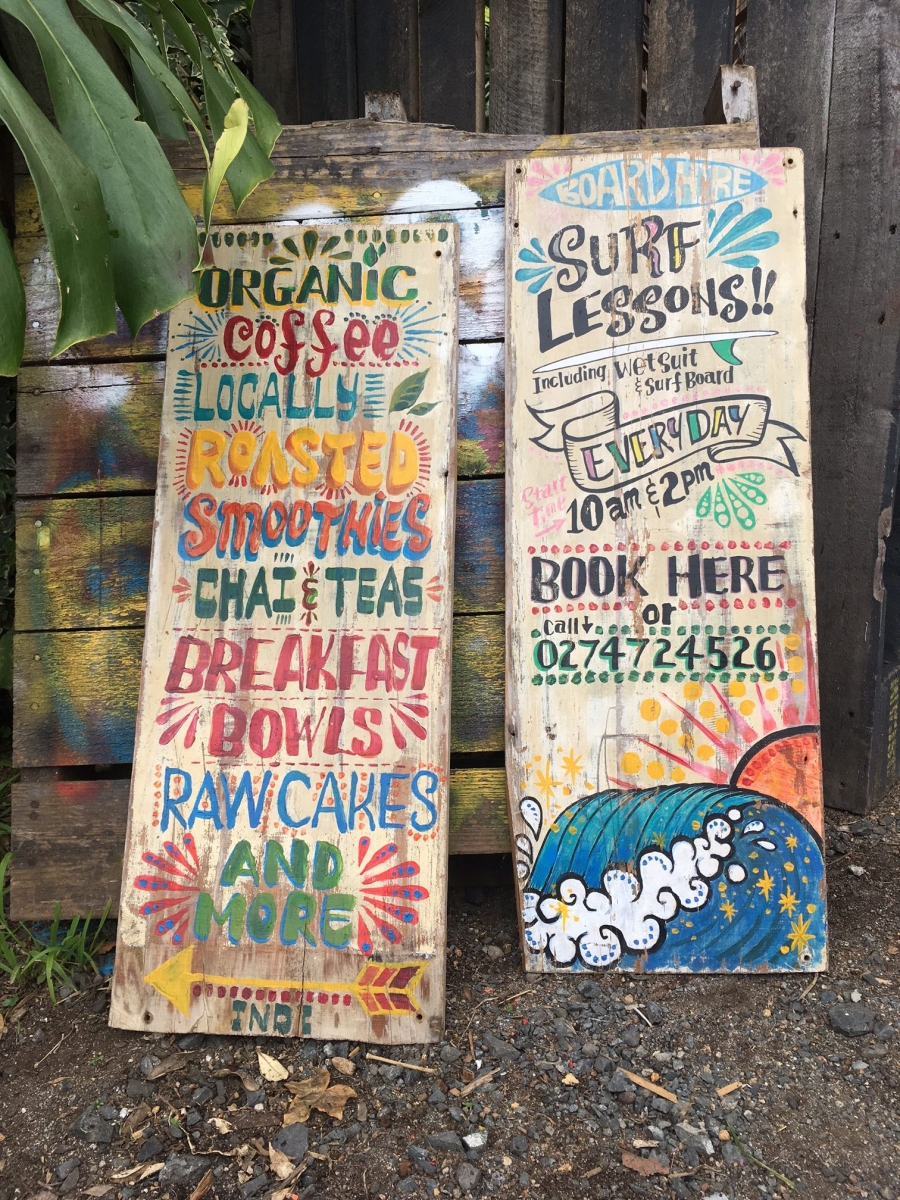 ORGANIC
Coffee
LOCALLY
ROASTED
SMOOTHIES
CHAI & TEAS
BREAKFAST
BOWLS
RAW CAKES
AND
MORE
BOARD HIRE
SURF
LESSONS!!
Including Wetsuit
& Surf Board
EVERYDAY
Start
Time
10am & 2pm
BOOK HERE
or
Call
0274724526